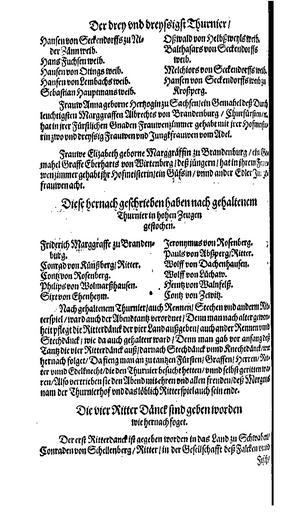 Der drey vnd dreyssigst Thurnier/
Hansen von Seckendorffs zu Ni-
der Zänn weib.
Hans Fuchsen weib.
Hansen von Ötings weib.
Hansen von Lembachs weib.
Sebastian Hauptmans weib.
Oßwald von weib.
Balthasars von Seckendorffs
weib.
Melchiors von Seckendorffs weib.
Hansen von Seckendorffs weib zu
Kroßperg.
Frauw Anna geborne Hertzogin zu Sachsen/ ein Gemahel deß Durch
leuchtigsten Marggraffen Albrechts von Brandenburg / Churfürsten/ ec.
hat in jrer Fürstlichen Gnaden Frauwenzimmer gehabt mit jrer Hofmeiste-
rin zwo vnd dreyssig Frauwen vnd Jungkfrauwen vom Adel.
Frauw Elizabeth geborne Marggräffin zu Brandenburg / ein Ge-
mahel Graffe Eberharts von Wirtenberg/ deß jüngern / hat in jhrem Frau-
wenzimmer gehabt jhr Hofmeisterin/ ein / vnnd ander Edler Jung-
frauwen acht.
Diese hernach geschrieben haben nach gehaltenem
Thurnier in hohen Zeugen
gestochen.
Friderich Marggraffe zu Branden-
burg.
Conrad von Künßberg/ Ritter.
Contz von Rosenberg.
Philips von Wolmarßhausen.
Sixt von Ehenheym.
Jeronymus von Rosenberg.
Pauls von Abßperg/ Ritter.
Wolff von Dachenhausen.
Wolff von Lüchaw.
Heintz von Walnfelß.
Contz von Zewitz.
Nach gehaltenem Thurnier/ auch Rennen/ Stechen vnd anderm Rit-
terspiel / ward auch der Abendtantz verordnet/ Denn man nach alter gewon-
heit pflegt die Ritterdänck der vier Land außgeben/ auch ander Rennen vnnd
Stechdänck / wie da auch gehalten ward / Denn man gab vor anfang deß
Tantz die vier Ritterdänck auß/ darnach Stechdänck vnnd / wie
hernach folget/ Da fieng man an zu tantzen Fürsten/ Graffen/ Herrn/ Rit-
ter vnnd Edelknecht/ die den Thurnier besucht hetten/ vnnd selbst geritten wa-
ren/ Also vertrieben sie den Abend mit ehren vnd allen freuden/ deß Morgens
nam der Thurnierhof vnd das löblich Ritterspiel auch sein ende.
Die vier Ritter Dänck sind geben worden
wie hernach folget.
Der erst Ritterdanck ist gegeben worden in das Land zu Schwaben/
Conraden von Schellenberg / Ritter / in der Gesellschafft deß Falcken vnnd